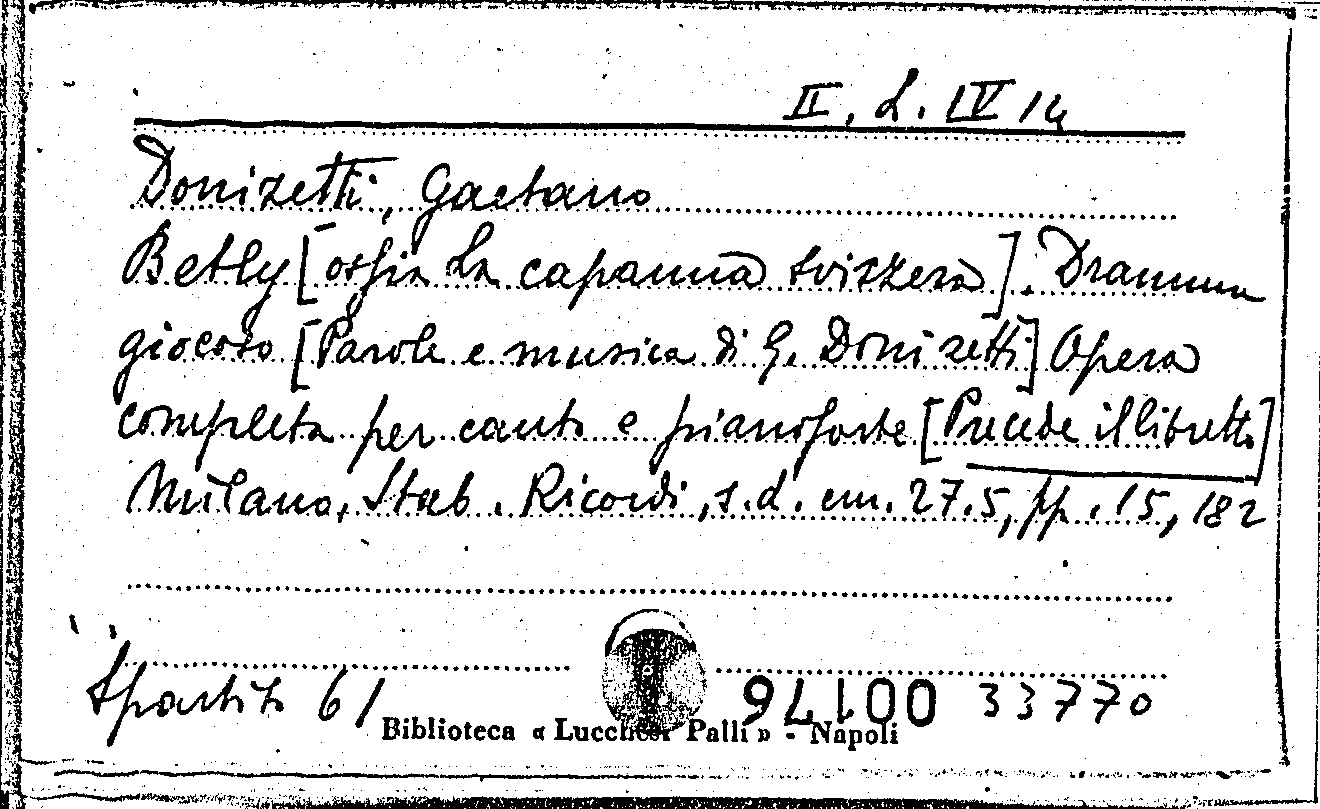 II. L. IV 14
Donizetti, Gaetano
Betly [ossia la capanna svizzera]. Dramma
giocoso [Parole e musica di G. Donizetti] Opera
completa per canto e pianoforte [Precede il libretto]
Milano, Stab. Ricordi, s.d. cm. 27.5, pp. 15, 182
Spartito 61
001176 33770
Biblioteca « Lucchesi Palli » - Napoli